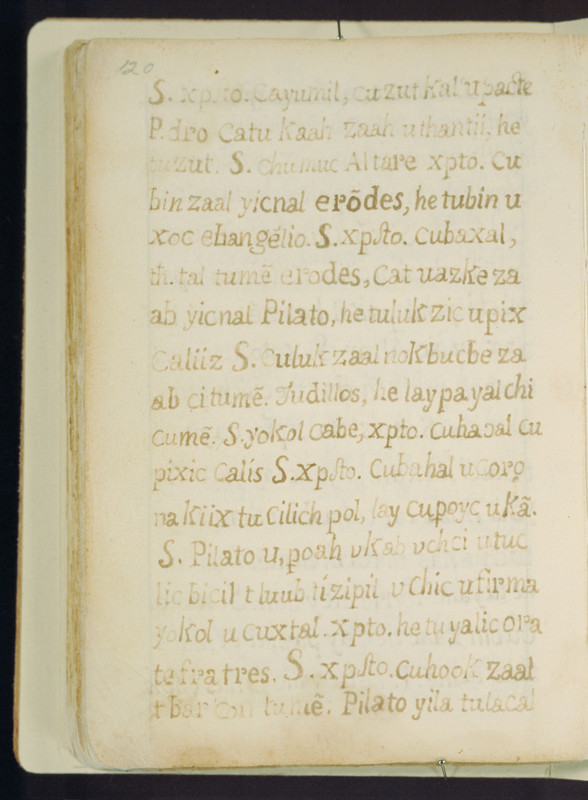 120
S. xpsto. Cayumil, cu zut kal u pacte
P.dro Catu kaah zaah uthantii, he
tu zut. S. chumuc Altare xpto. Cu
bin zaal yicnal erõdes, he tubin u
xoc ebangélio. S. xpsto. cubaxal,
th. tal tumẽ erodes, Cat uazke za
ab yicnal Pilato, he tuluk zic u pix
Caliiz S. Culuk zaal nok bucbe za
ab ci tumẽ. Judillos, he lay payalchi
cumẽ. S. yokol cabe, xpto. cuhaɔal cu
pixic Calis S. xpsto. Cubahal u coro
na kiix tu Cilich pol, lay cupoyc u kã.
S. Pilato u, poah v kab v chci u tuc
lic bicil t luub ti zipil v chic u firma
yokol u cuxtal. xpto. he tu yalic ora
te fratres. S. xpsto. cuhook zaal
t bar con tumẽ. Pilato yila tulacal